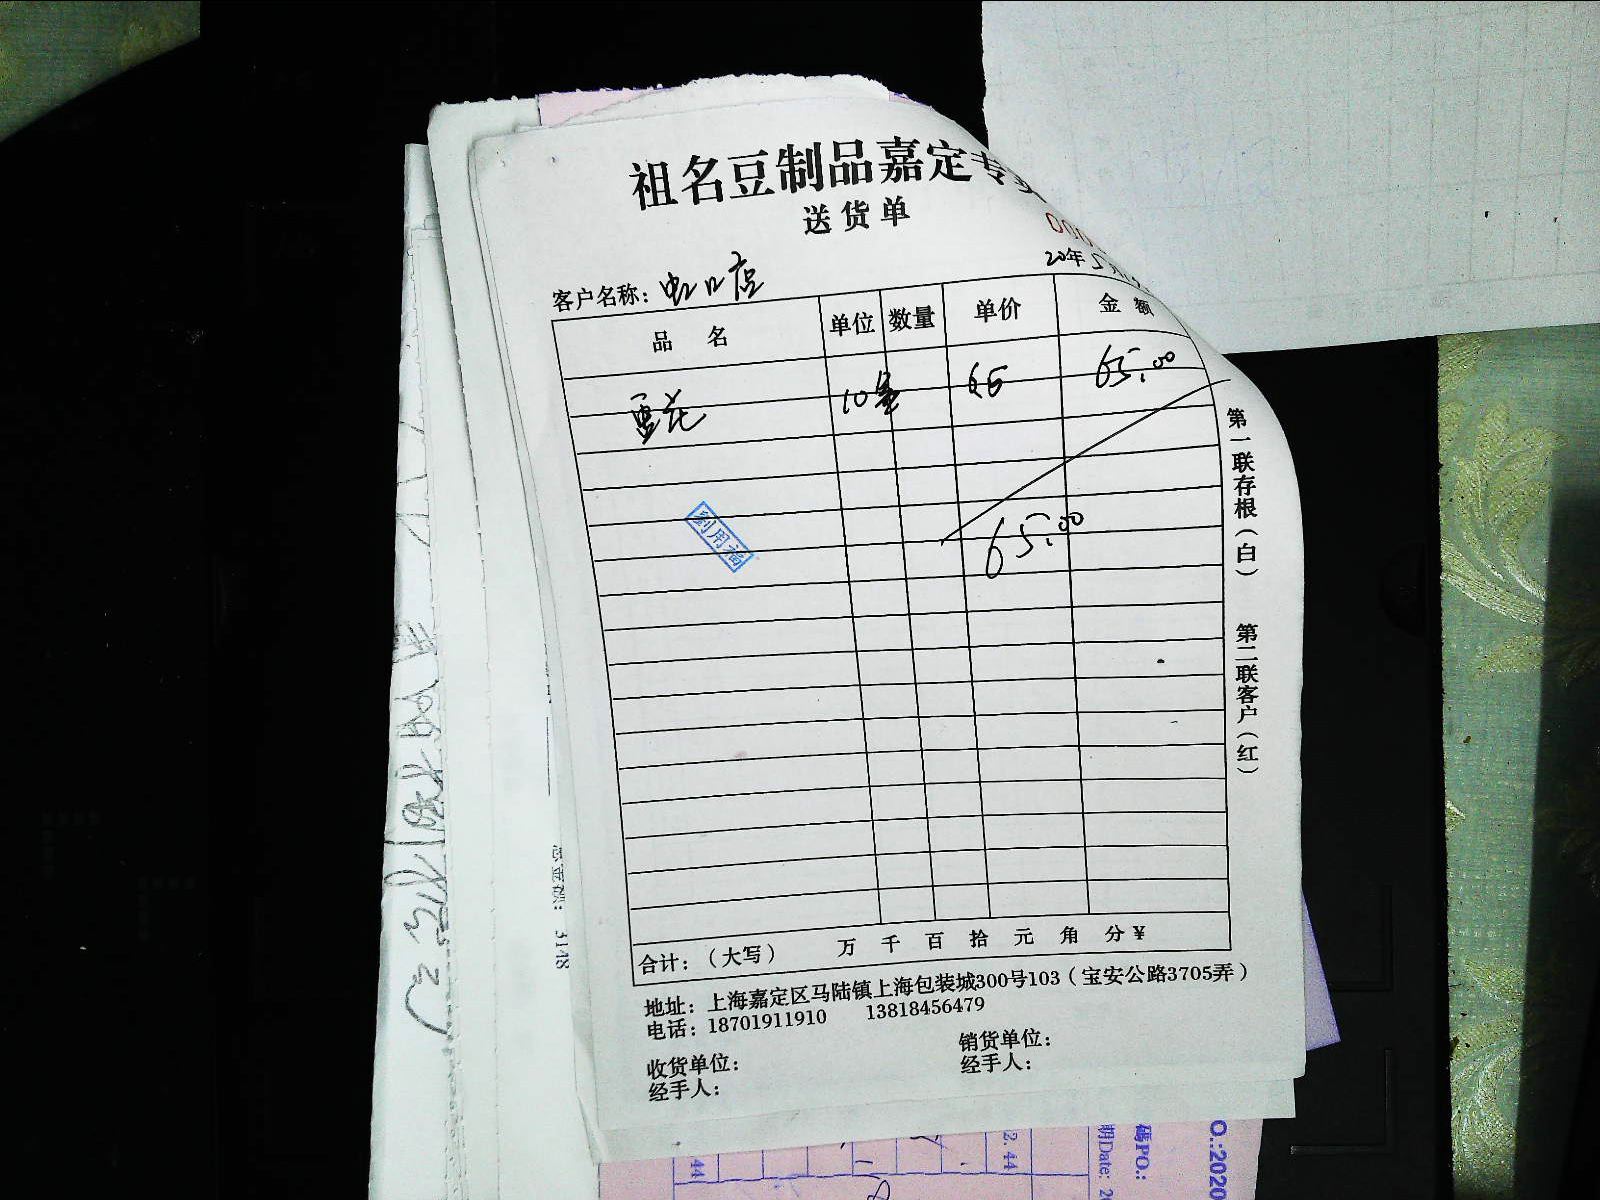 祖名豆制品嘉定专
送货单
000
20年5月
客户名称：虹口店
品名 单位 数量 单价 金额
豆花 10盒 6.5 65.00
65.00
刘用福
第一联存根（白） 第二联客户（红）
合计：（大写） 万 千 百 拾 元 角 分￥
地址：上海嘉定区马陆镇上海包装城300号103（宝安公路3705弄）
电话：18701911910 13818456479
收货单位： 销货单位：
经手人： 经手人：
总金额：3148
2.44
44
期Date：
码PO.：
O.:2020